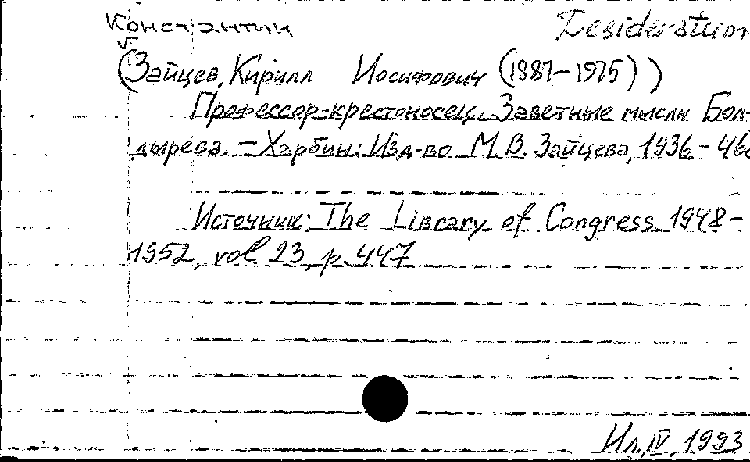 Константин Desideratum
(Зайцев, Кирилл Иосифович (1887-1975))
Профессор-крестоносец. Заветные мысли Бол-
дырева. - Харбин: Изд-во М.В. Зайцева, 1936. - 46с
Источник: The Library of Congress 1948-
1952, vol 23, p. 447
Ил. IV. 1993